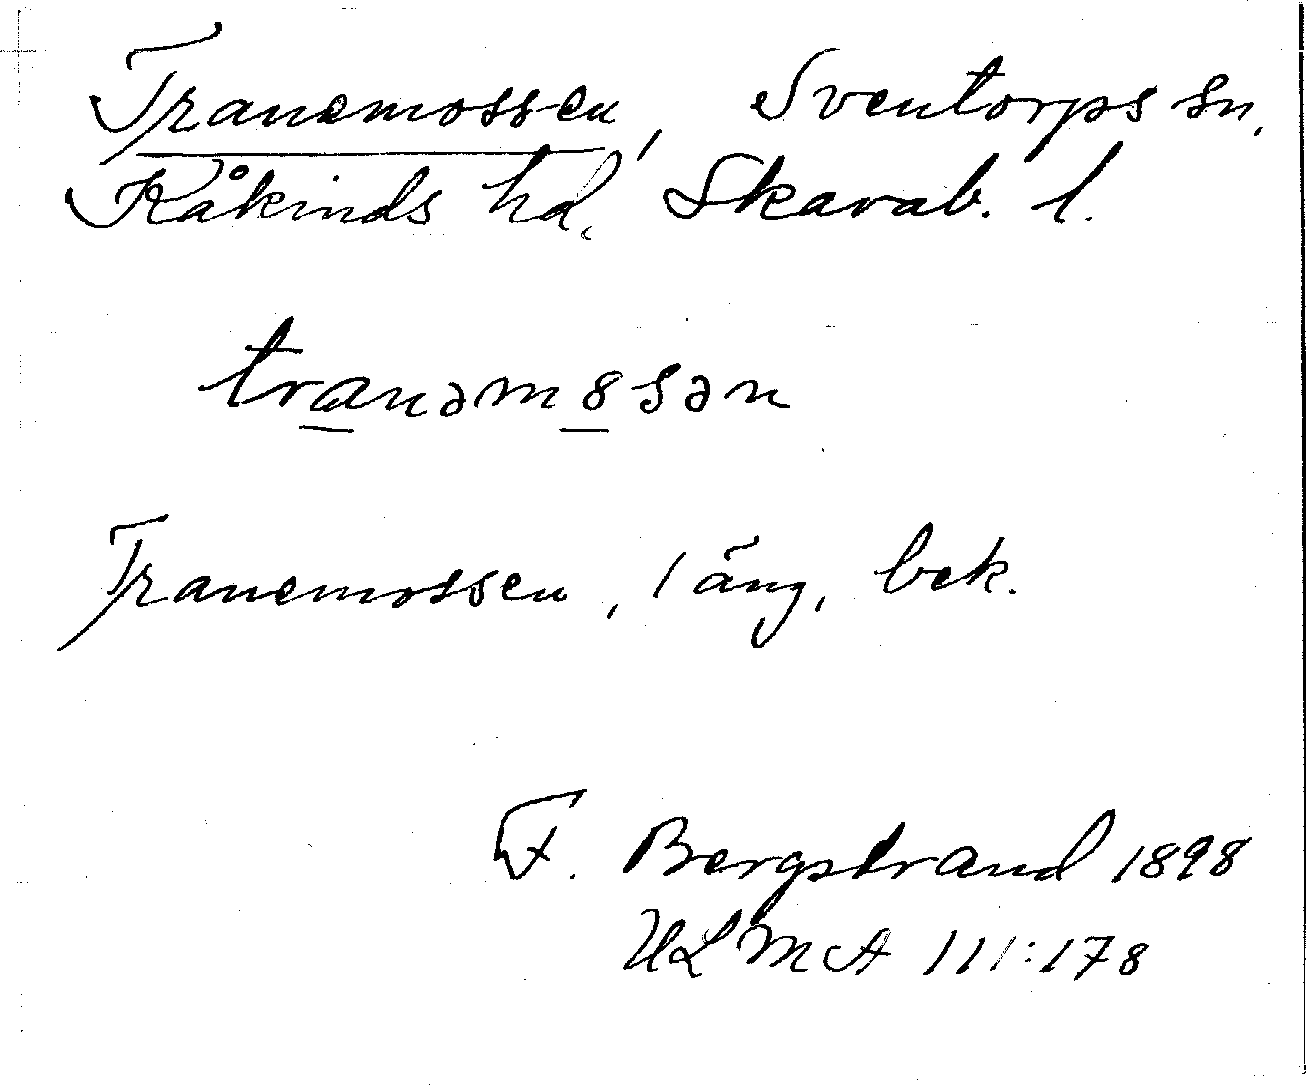 Tranemossen, Sventorps sn,
Kåkinds hd, Skarab. l.
tranəm8sən
Tranemossen, 1 äng, bek.
F. Bergstrand 1898
ULMA 111:178